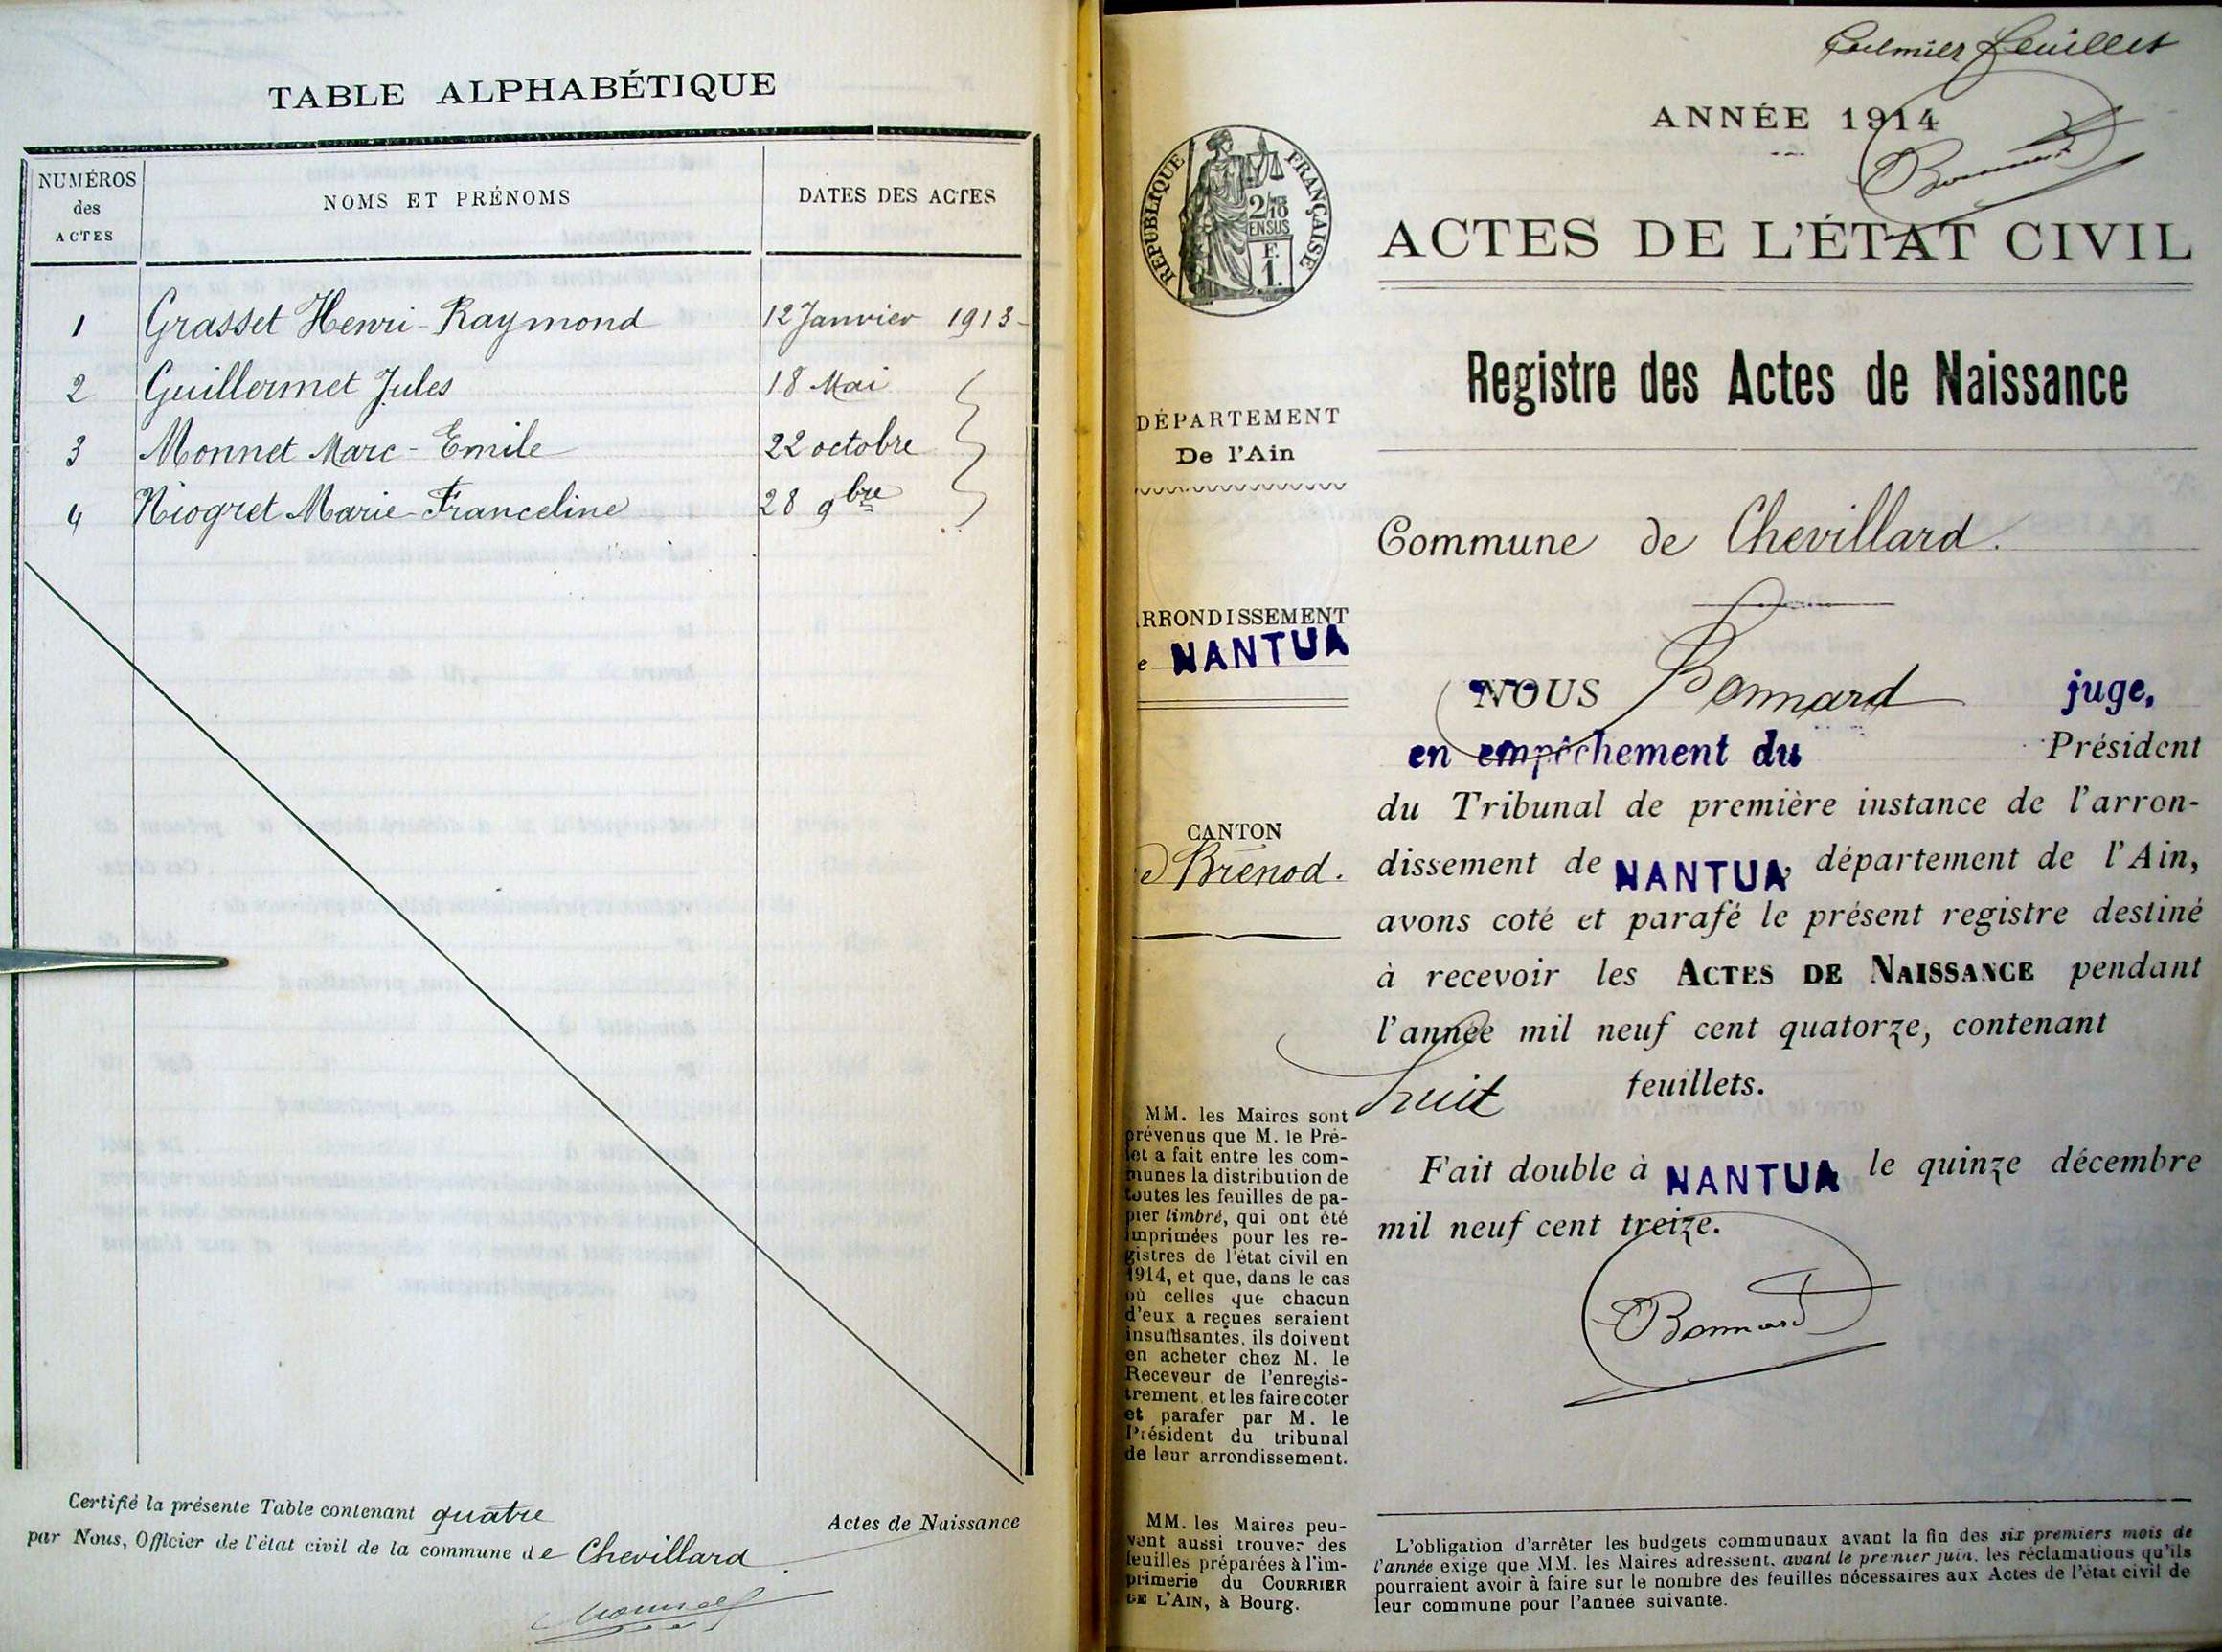 TABLE ALPHABÉTIQUE
NUMÉROS
des
ACTES
NOMS ET PRÉNOMS
DATES DES ACTES
1 Grasset Henri-Raymond 12 Janvier 1913
2 Guillermet Jules 18 Mai
3 Monnet Marc-Emile 22 octobre
4 Niogret Marie-Franceline 28 9bre
Certifié la présente Table contenant quatre Actes de Naissance
par Nous, Officier de l'état civil de la commune de Chevillard
Premier feuillet
ANNÉE 1914
Bonnard
RÉPUBLIQUE FRANÇAISE
2/10
EN SUS
F.
1.
ACTES DE L'ÉTAT CIVIL
Registre des Actes de Naissance
DÉPARTEMENT
De l'Ain
Commune de Chevillard.
ARRONDISSEMENT
e NANTUA
CANTON
e Brénod.
NOUS Bonnard juge,
en empêchement du Président
du Tribunal de première instance de l'arron-
dissement de NANTUA, département de l'Ain,
avons coté et parafé le présent registre destiné
à recevoir les ACTES DE NAISSANCE pendant
l'année mil neuf cent quatorze, contenant
huit feuillets.
Fait double à NANTUA le quinze décembre
mil neuf cent treize.
Bonnard
MM. les Maires sont
prévenus que M. le Pré-
fet a fait entre les com-
munes la distribution de
toutes les feuilles de pa-
pier timbré, qui ont été
imprimées pour les re-
gistres de l'état civil en
1914, et que, dans le cas
où celles que chacun
d'eux a reçues seraient
insuffisantes, ils doivent
en acheter chez M. le
Receveur de l'enregis-
trement et les faire coter
et parafer par M. le
Président du tribunal
de leur arrondissement.
MM. les Maires peu-
vent aussi trouver des
feuilles préparées à l'im-
primerie du COURRIER
DE L'AIN, à Bourg.
L'obligation d'arrêter les budgets communaux avant la fin des six premiers mois de
l'année exige que MM. les Maires adressent, avant le premier juin, les réclamations qu'ils
pourraient avoir à faire sur le nombre des feuilles nécessaires aux Actes de l'état civil de
leur commune pour l'année suivante.